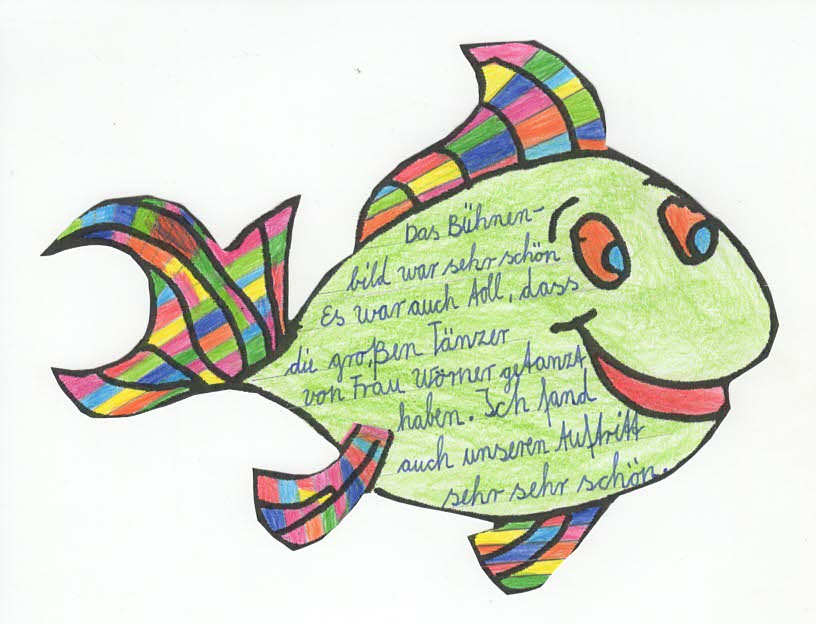 Das Bühnen-
bild war sehr schön
Es war auch toll, dass
die großen Tänzer
von Frau Wörner getanzt
haben. Ich fand
auch unseren Auftritt
sehr sehr schön.